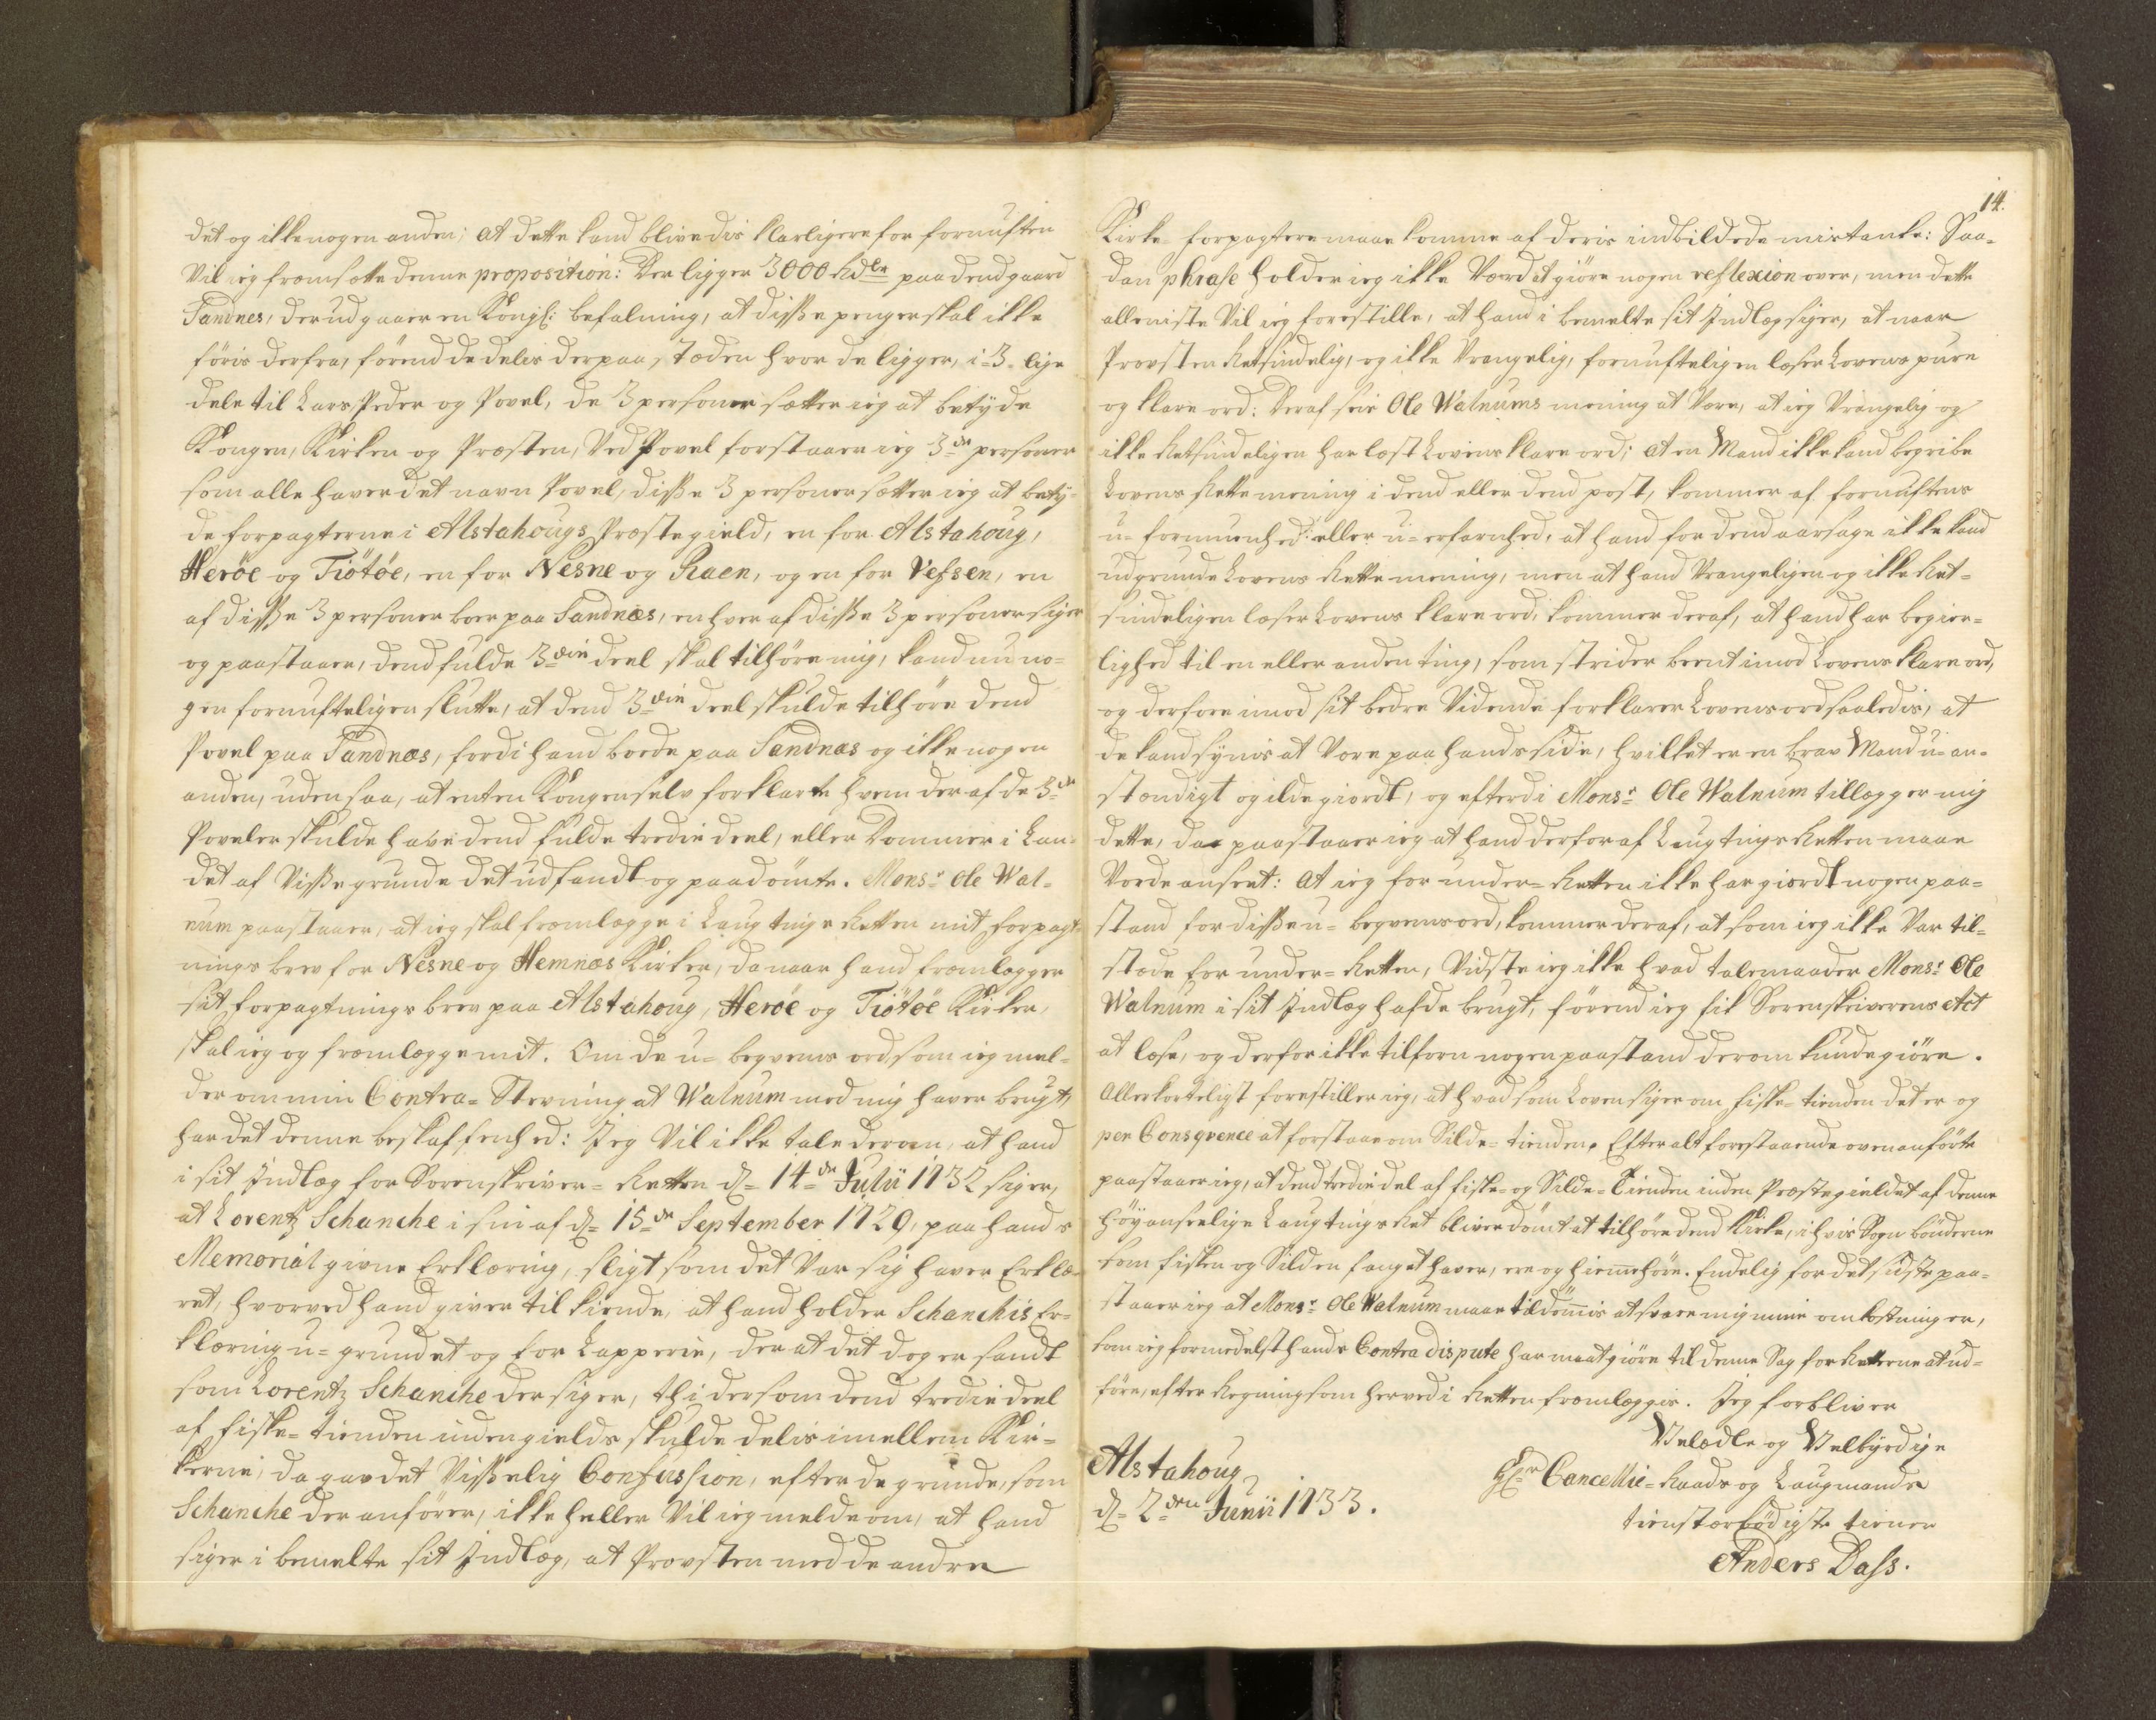 det og ikke nogen anden; at dette kand blive dis klarligere for fornuften
Vil ieg fremsætte denne proposition: Der ligger 3000 Rdlr paa dend gaard
Sandnes, der udgaaer en Kongl: befalning, at disse penger skal ikke
föris derfra, förend de delis derpaa, stæden hvor de ligger, i 3 lige
dele til Lars Peder og Povel, de 3 personer sætter ieg at betyde
Kongen, Kirken og Præsten, Ved Povel forstaaer ieg 3de personer
som alle haver det navn Povel, disse 3 personer sætter ieg at bety-
de forpagterne i Alstahougs Præstegield, en for Alstahoug,
Heröe og Tiötöe, en for Nesne og Raen, og en for Vefsen, en
af disse 3 personer boer paa Sandnæs, en hver af disse 3 personer siger
og paastaaer, dend fulde 3die deel skal tilhöre mig, kand nu no-
gen fornufteligen slutte, at dend 3die deel skulde tilhöre dend
Povel paa Sandnæs, fordi hand boede paa Sandnæs og ikke nogen
anden, uden saa, at enten Kongen selv forklarte hvem der af de 3de
Poveler skulde have dend fulde tredie deel, eller Dommer i Lan-
det af Visse grunde det udfandt og paadömte. Monsr Ole Wal-
num paastaaer, at ieg skal fremlægge i Laugtings Retten mit forpagt-
nings brev for Nesne og Hemnæs Kirker, da naar hand fremlægger
sit forpagtnings brev paa Alstahoug, Heröe og Tiötöe Kirker,
skal ieg og fremlægge mit. Om de u-beqvems ord, som ieg mel-
der om min Contra-Stevning at Walnum med mig haver brugt,
har det denne beskaffenhed: Jeg Vil ikke tale derom, at hand
i sit Indlæg for Sorenskriver-Retten d= 14de Julii 1732 siger,
at Lorentz Schanche i sin af d= 15de September 1729, paa hands
Memorial givne Erklæring, sligt som det Var sig haver Erklæ-
ret, hvorved hand giver tilkiende, at hand holder Schanchis Er-
klæring u-grundet og for Lapperie, der at det dog er sandt
som Lorentz Schanche der siger, thi dersom dend tredie deel
af fiske-tienden inden gields skulde delis imellem Kir-
kerne, da gav det Visselig Confussion, efter de grunde, som
Schanche der anförer, ikke heller Vil ieg melde om, at hand
siger i bemelte sit Indlæg, at Provsten med de andre
14.
Kirke-forpagtere maae komme af deris indbildede mistanke: Saa-
dan phrase holder ieg ikke Værd at giöre nogen reflexion over, men dette
alleniste Vil ieg forestille, at hand i bemelte sit Indlæg siger, at naar
Provsten Retsindelig, og ikke Vrangelig, fornufteligen læser Lovens pure
og klare ord: Deraf seis Ole Walnums mening at Være, at ieg Vrangelig og
ikke Retsindeligen har læst Lovens klare ord; at en Mand ikke kand begribe
Lovens Rette mening i dend eller dend post, kommer af fornuftens
u-formuenhed: eller u-erfarnhed, at hand for dend aarsage ikke kand
udgrunde Lovens Rette mening, men at hand Vrangeligen og ikke Ret-
sindeligen læser Lovens klare ord, kommer deraf, at hand har begier-
lighed til en eller anden ting, som strider beent imod Lovens klare ord,
og derfore imod sit bedre Vidende forklarer Lovens ord saaledis, at
de kand synis at Være paa hands side, hvilket er en brav Mand u-an-
stændigt og ilde giordt, og efterdi Monsr Ole Walnum tillægger mig
dette, da paastaaer ieg at hand derfor af Laugtings Retten maae
Vorde anseet: At ieg for under-Retten ikke har giordt nogen paa-
stand for disse u-beqvems ord, kommer deraf, at som ieg ikke Var til-
stæde for under-Retten, Vidste ieg ikke hvad talemaader Monsr Ole
Walnum i sit Indlæg hafde brugt, förend ieg fik Sorenskriverens Act
at læse, og derfor ikke tilforn nogen paastand derom kunde giöre.
Allerkorteligst forestiller ieg, at hvad som Loven siger om fiske-tienden det er og
per Consqvence at forstaae om Silde-tienden. Efter alt forestaaende ovenanförte
paastaaer ieg, at dend tredie del af fiske- og Silde-Tienden inden Præstegieldet af denne
höyanseelige Laugtings Ret bliver dömt at tilhöre dend Kirke, i hvis Sogn bönderne
som fisken og Silden fanget haver, ere og hiemehöre. Endelig for det sidste paa-
staaer ieg at Monsr Ole Walnum maae tildömis at svare mig mine omkostninger,
som ieg formedelst hands Contra dispute har maat giöre til denne Sag for Retterne at ud-
före, efter Regning som herved i Retten fremlæggis. Jeg forbliver
Velædle og Velbyrdige
Hr Cancellie-Raads og Laugmands
tienstærbödigste tiener
Anders Dass.
Alstahoug
d= 2den Junii 1733.